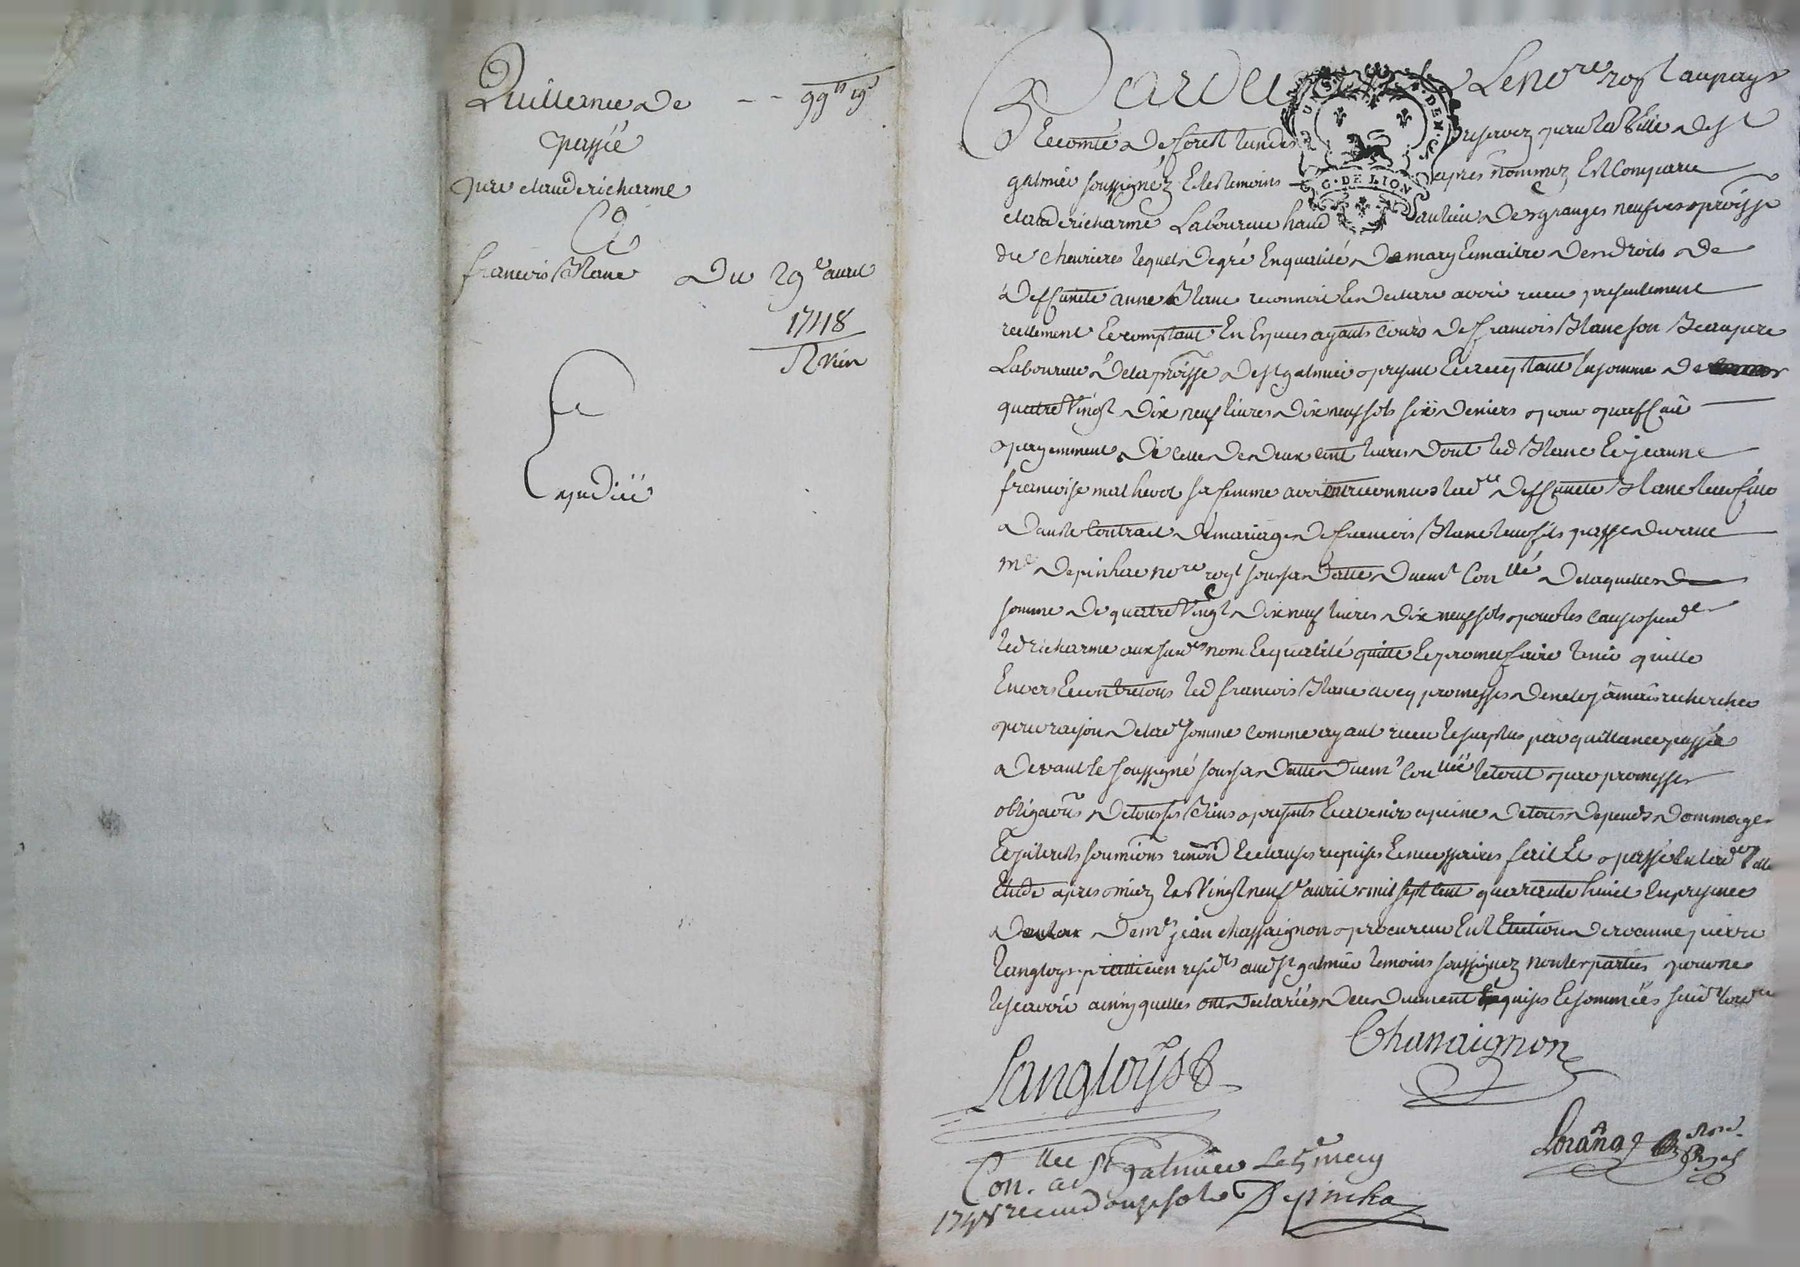 Quittance de -- 99ll 19s
passée
par claude richarme
a
francois Blanc Du 29e avril
1748
Expediée
Pardevant Le nore royl au pays
Et comté de forest land reservez pour la Ville de st
galmier soussignez Et les temoins apres nommez Est Comparu
claude richarme Laboureur du lieu des granges neufves parroisse
de chevrieres lequel de gré En qualité de mary Et maitre des droits de
deffuncte anne Blanc reconnoit Et declare avoir receu presentement
reellement Et comptant En Especes ayants cours de francois Blanc son Beaupere
Laboureur de la parroisse de st galmier present Et acceptant la somme de
quatre Vingt dix neuf livres dix neuf sols six deniers pour parfait
payemment de celle de deux cent livres dont led Blanc Et jeanne
francoise mathevot sa femme avoient reconnus a lade deffuncte Blanc leur fille
dans le Contrait de mariage de francois Blanc leur fils passé devant
me depinhac nore royl sous sa datte duemt Conllé de laquelle
somme de quatre Vingt dix neuf livres dix neuf sols pour les causes susde
led richarme aux susds nom Et qualité quitte Et promet faire tenir quitte
Envers Et contre tous led francois Blanc avec promesses de ne le jamais rechercher
pour raison de lade somme comme ayant receu le surplus par quittance passée
devant le soussigné sous sa datte duemt Conllée le tout par promesses
obligaons de tous ses Biens presents Et avenir a peine de tous depends dommages
Et interests soumissions renonons Et clauses requises Et necessaires fait Et passé En lade Ville
Etude apres midy le Vingt neufe avril mil sept cent quarante huict En presence
de me jean chassaignon procureur En l'Election de roanne pierre
langloys praticien residts aud st galmier temoins soussignez non les parties pour ne
le scavoir ainsy quelles ont declarées de ce duement Enquises Et sommées suivt lorde
Langloys Chassaignon
Nore Royal
Conllé a st galmier Le 5e mey
1748 receu douze sols Depinha
G. DE LION